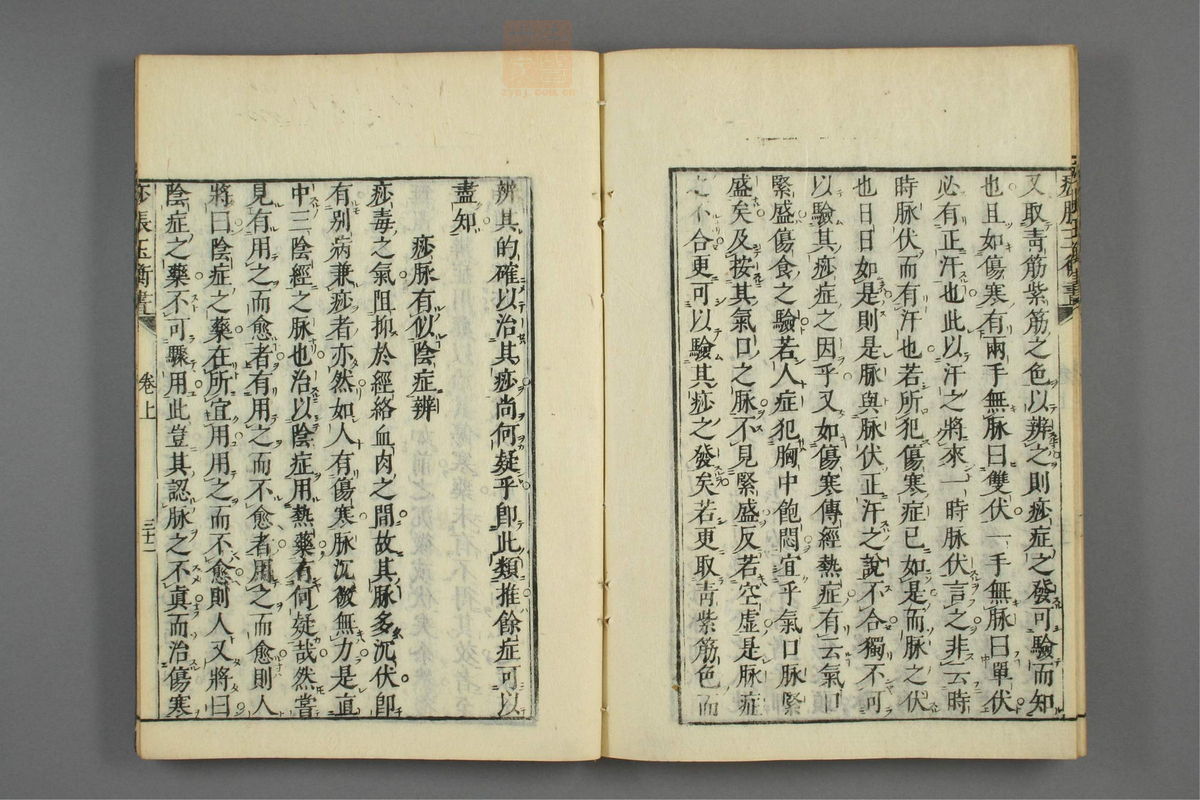 又取青筋紫筋之色以辨之則痧症之發可驗而知
也且如傷寒有兩手無脉曰雙伏一手無脉曰單伏
必有正汗也此以汗之將來一時脉伏言之非云時
時脉伏而有汗也若所犯傷寒症已如是而脉之伏
也日日如是則是脉與脉伏正汗之說不合獨不可
以驗其痧症之因乎又如傷寒傳經熱症有云氣口
緊盛傷食之驗若人症犯胸中飽悶宜乎氣口脉緊
盛矣及按其氣口之脉不見緊盛反若空虛是脉症
之不合更可以驗其痧之發矣若更取青紫筋色而
辨其的確以治其痧尚何疑乎卽此類推餘症可以
盡知
痧脉有似陰症辨
痧毒之氣阻抑於經絡血肉之間故其脉多沉伏卽
有别病兼痧者亦然如人有傷寒脉沉微無力是直
中三陰經之脉也治以陰症用熱藥有何疑哉然嘗
見有用之而愈者有用之而不愈者用之而愈則人
將曰陰症之藥在所宜用用之而不愈則人又將曰
陰症之藥不可驟用此豈其認脉之不真而治傷寒
痧脹玉衡書
卷上
三十二
zysj.com.cn